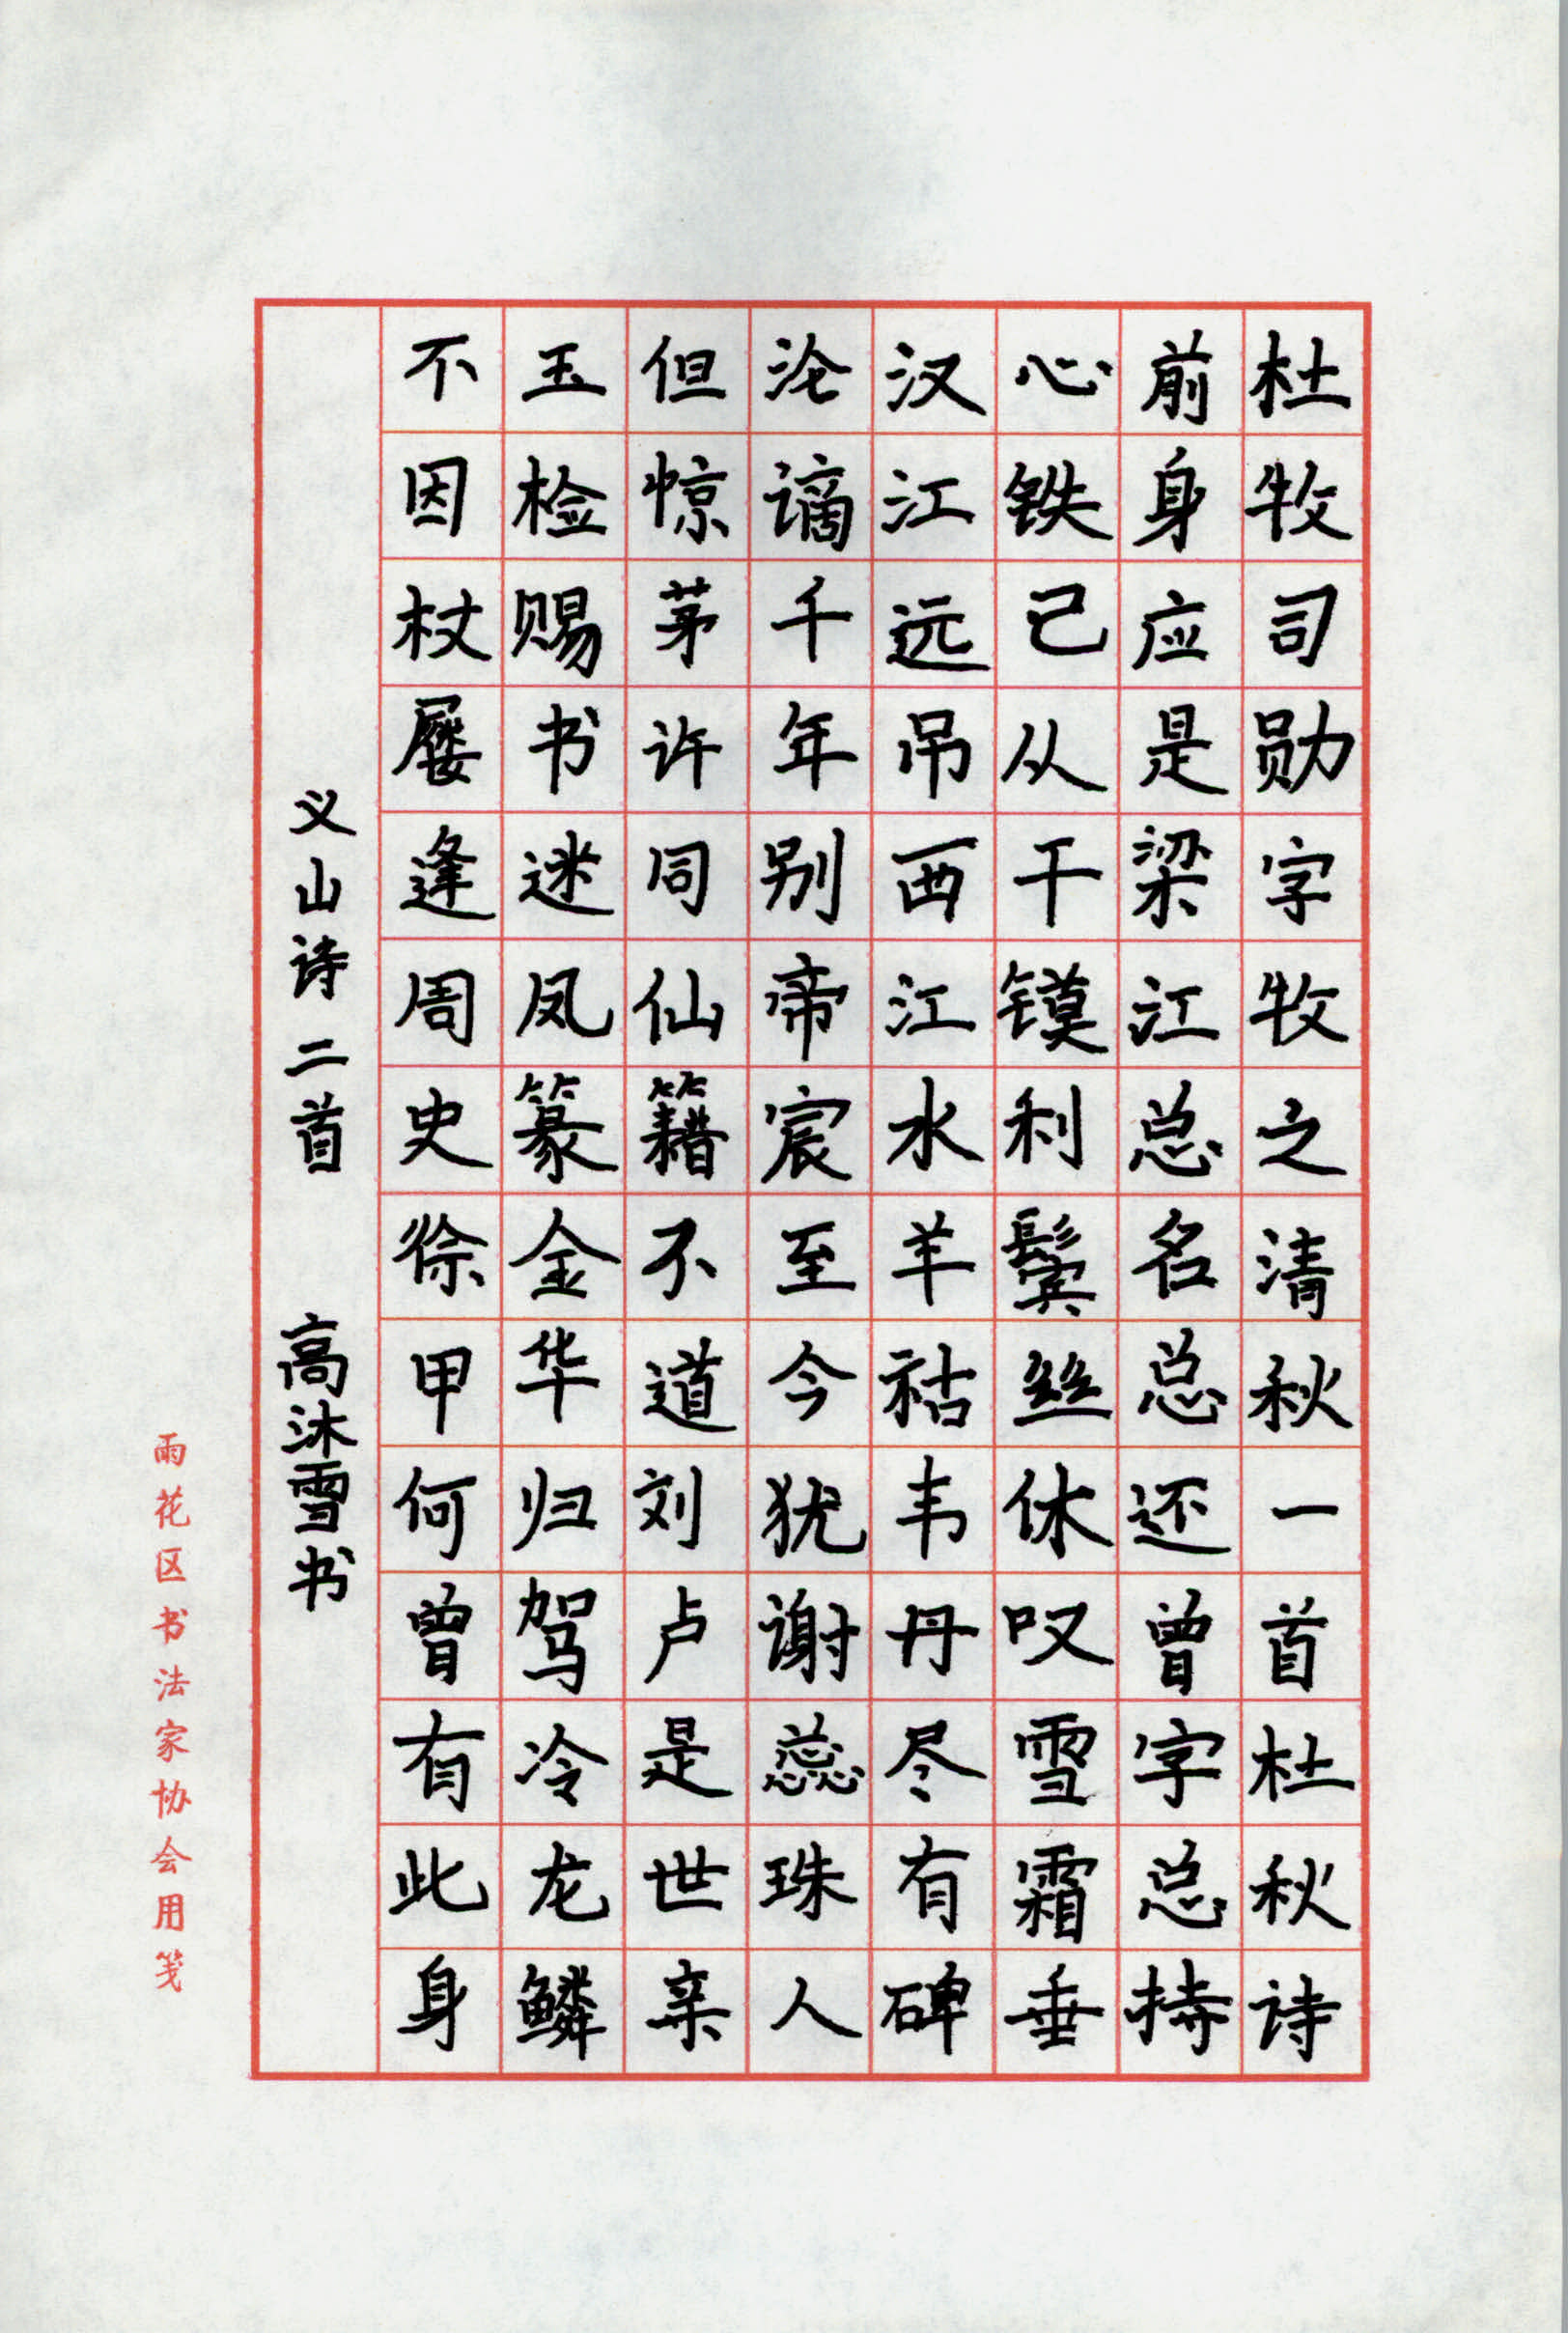 杜牧司勋字牧之清秋一首杜秋诗
前身应是梁江总名总还曾字总持
心铁己从干镆利鬓丝休叹雪霜垂
汉江远吊西江水羊祜韦丹尽有碑
沦谪千年别帝宸至今犹谢蕊珠人
但惊茅许同仙籍不道刘卢是世亲
玉检赐书迷凤篆金华归驾冷龙鳞
不因杖屦逢周史徐甲何曾有此身
义山诗二首 高沐雪书
雨花区书法家协会用笺